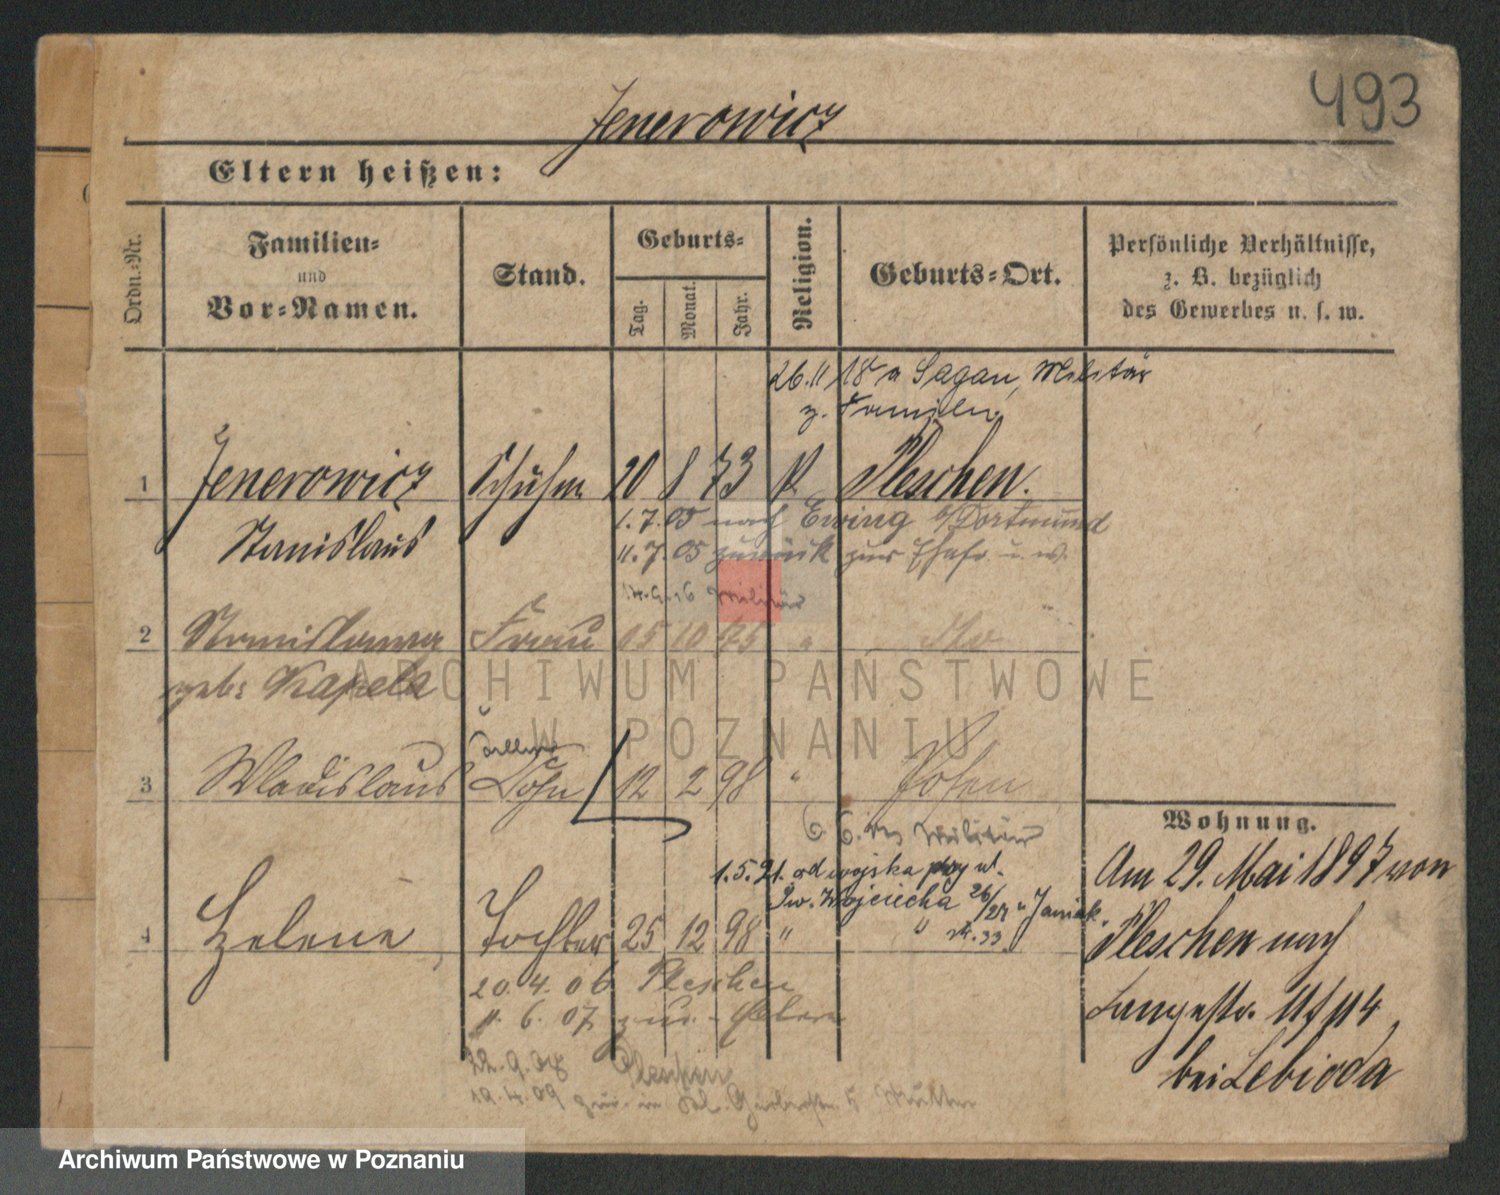 493
Jenerowicz
Eltern heißen:
Ordn.-Nr.
Familien-
und
Vor-Namen.
Stand.
Geburts-
Tag.
Monat.
Jahr.
Religion.
Geburts-Ort.
Persönliche Verhältnisse,
z. B. bezüglich
des Gewerbes u. s. w.
26. 11 18 a Sagan, Militär
z. Familie
1 Jenerowicz Schuhm 20 8 73 K Pleschen.
Stanislaus
1.7.05 nach Ewing b/Dortmund
11.7.05 zurück zur Ehefr. u. w.
14.9.16 Militär
2 Stanislawa Frau 15 10 75 " dto
geb: Kapela
3 Wladislaus Sohn 12 2 98 " Posen
6. 6. Militär
1.5.21. od wojska przy ul.
Św. Wojciecha 26/27 u Janiak.
4 Helene Tochter 25 12 98 " " 33
20. 4. 06 Pleschen
11. 6. 07 zur. Eltern
22. 9. 08 Pleschen
19. 4. 09 zur. Mutter
Wohnung.
Am 29. Mai 1897 von
Pleschen nach
Langestr. 11/114
bei Lebioda
ARCHIWUM PAŃSTWOWE
W POZNANIU
Archiwum Państwowe w Poznaniu